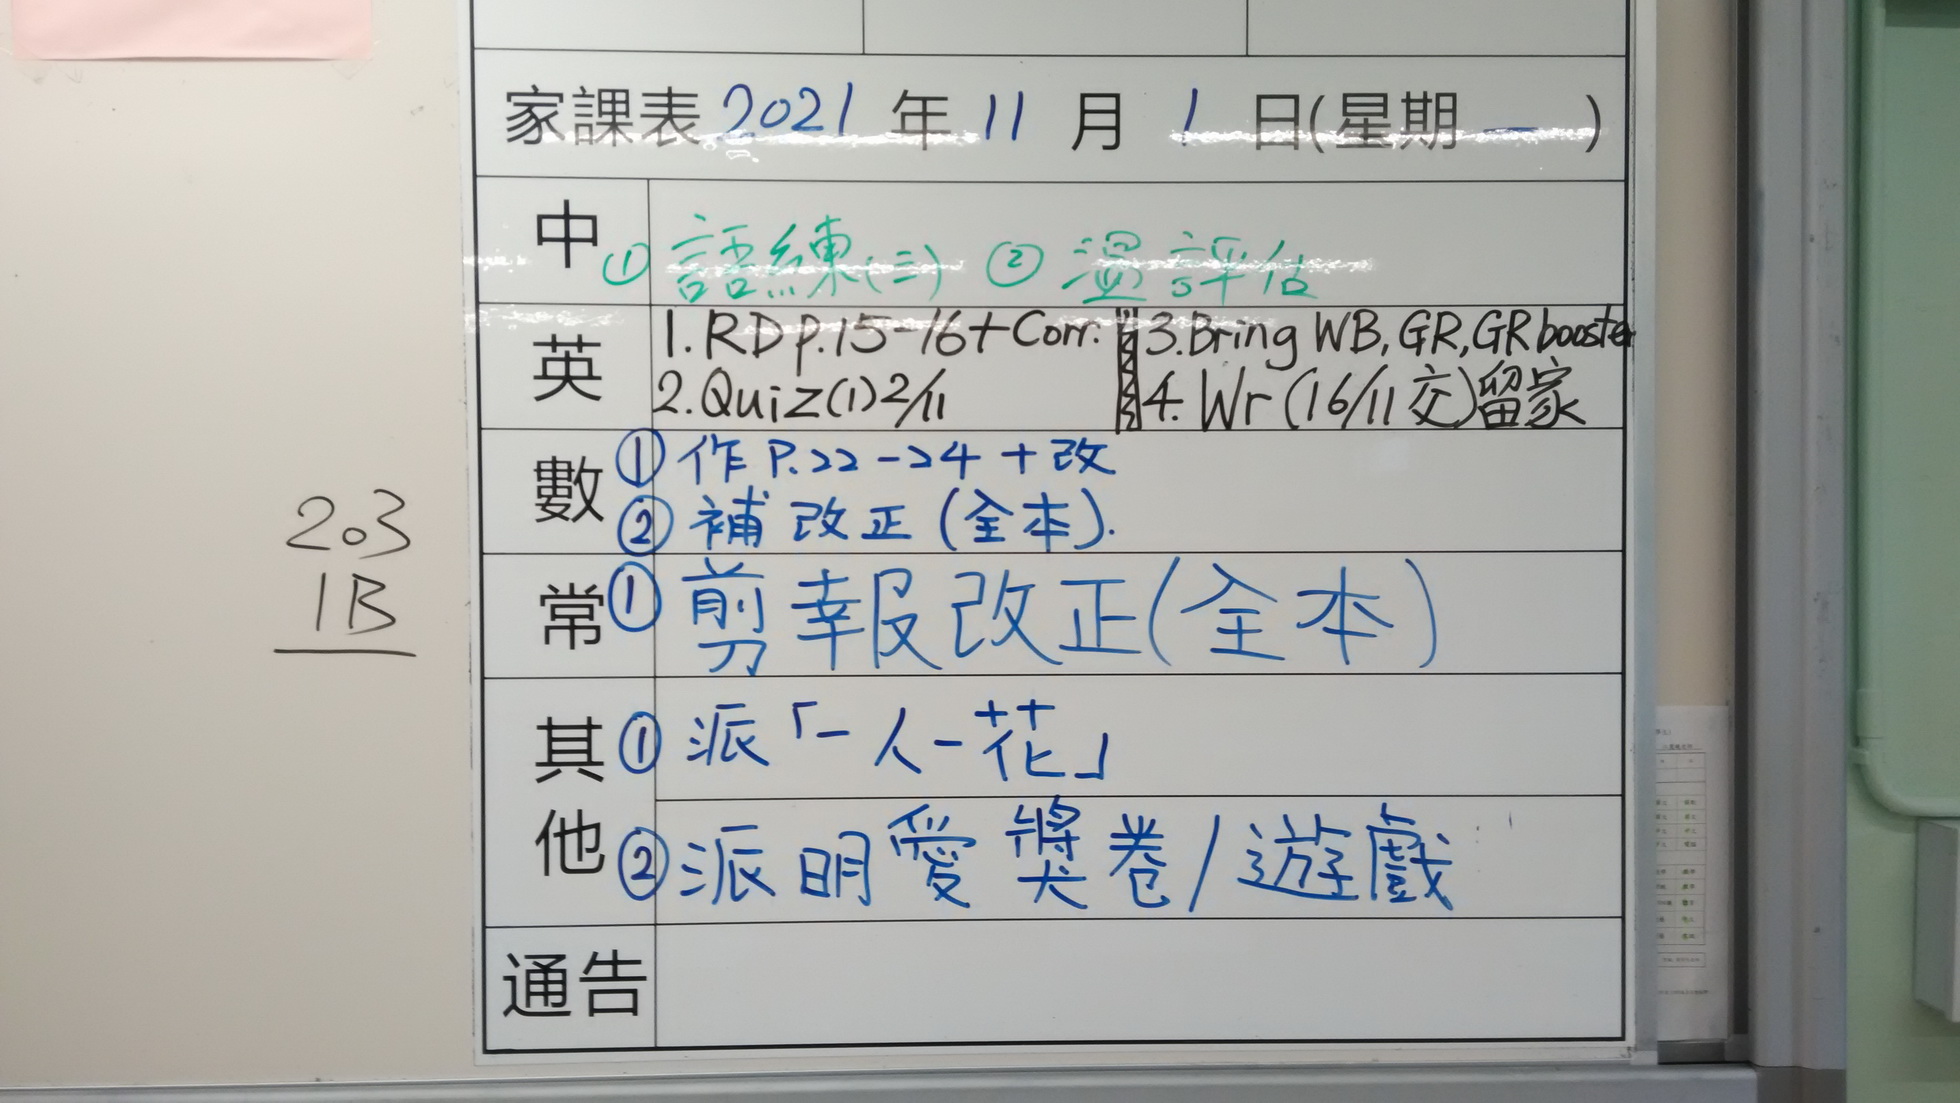 家課表 2021 年 11 月 1 日(星期 一 )
中 ① 語練(三) ② 溫評估
英 1. RD p.15-16 + Corr. 3. Bring WB, GR, GR booster
2. Quiz(1) 2/11 4. Wr (16/11 交) 留家
數 ① 作 P.22-24 + 改
② 補 改正 (全本).
常 ① 剪報改正(全本)
其他 ① 派「一人一花」
② 派明愛獎卷/遊戲
通告
203
1B